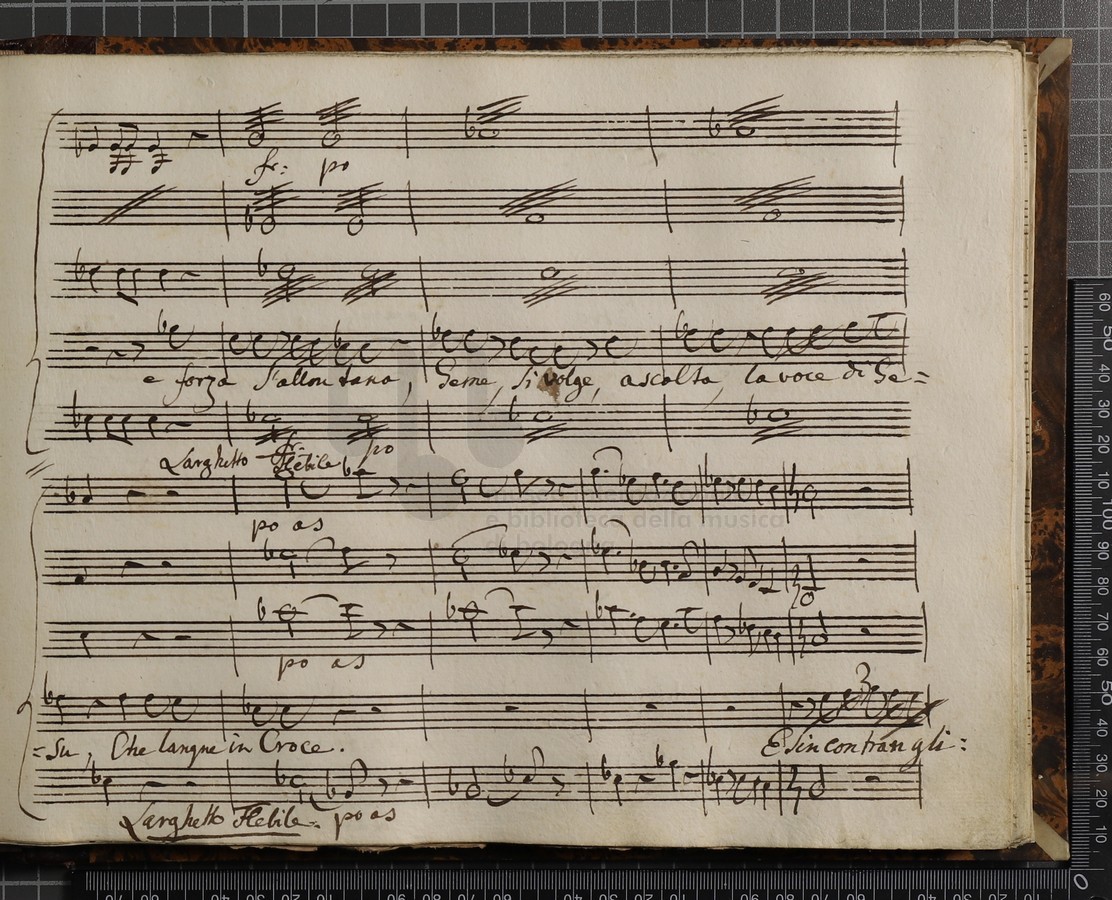 fr: po
e forza s'allontana, Geme, si volge, ascolta la voce di Ge=
fr: po
Larghetto Flebile
po as
e biblioteca della musica
di bologna
po as
=su, Che langue in Croce. E s'incontran gli:
3
Larghetto Flebile: po as
60 50 40 30 20 10 100 90 80 70 60 50 40 30 20 10 0